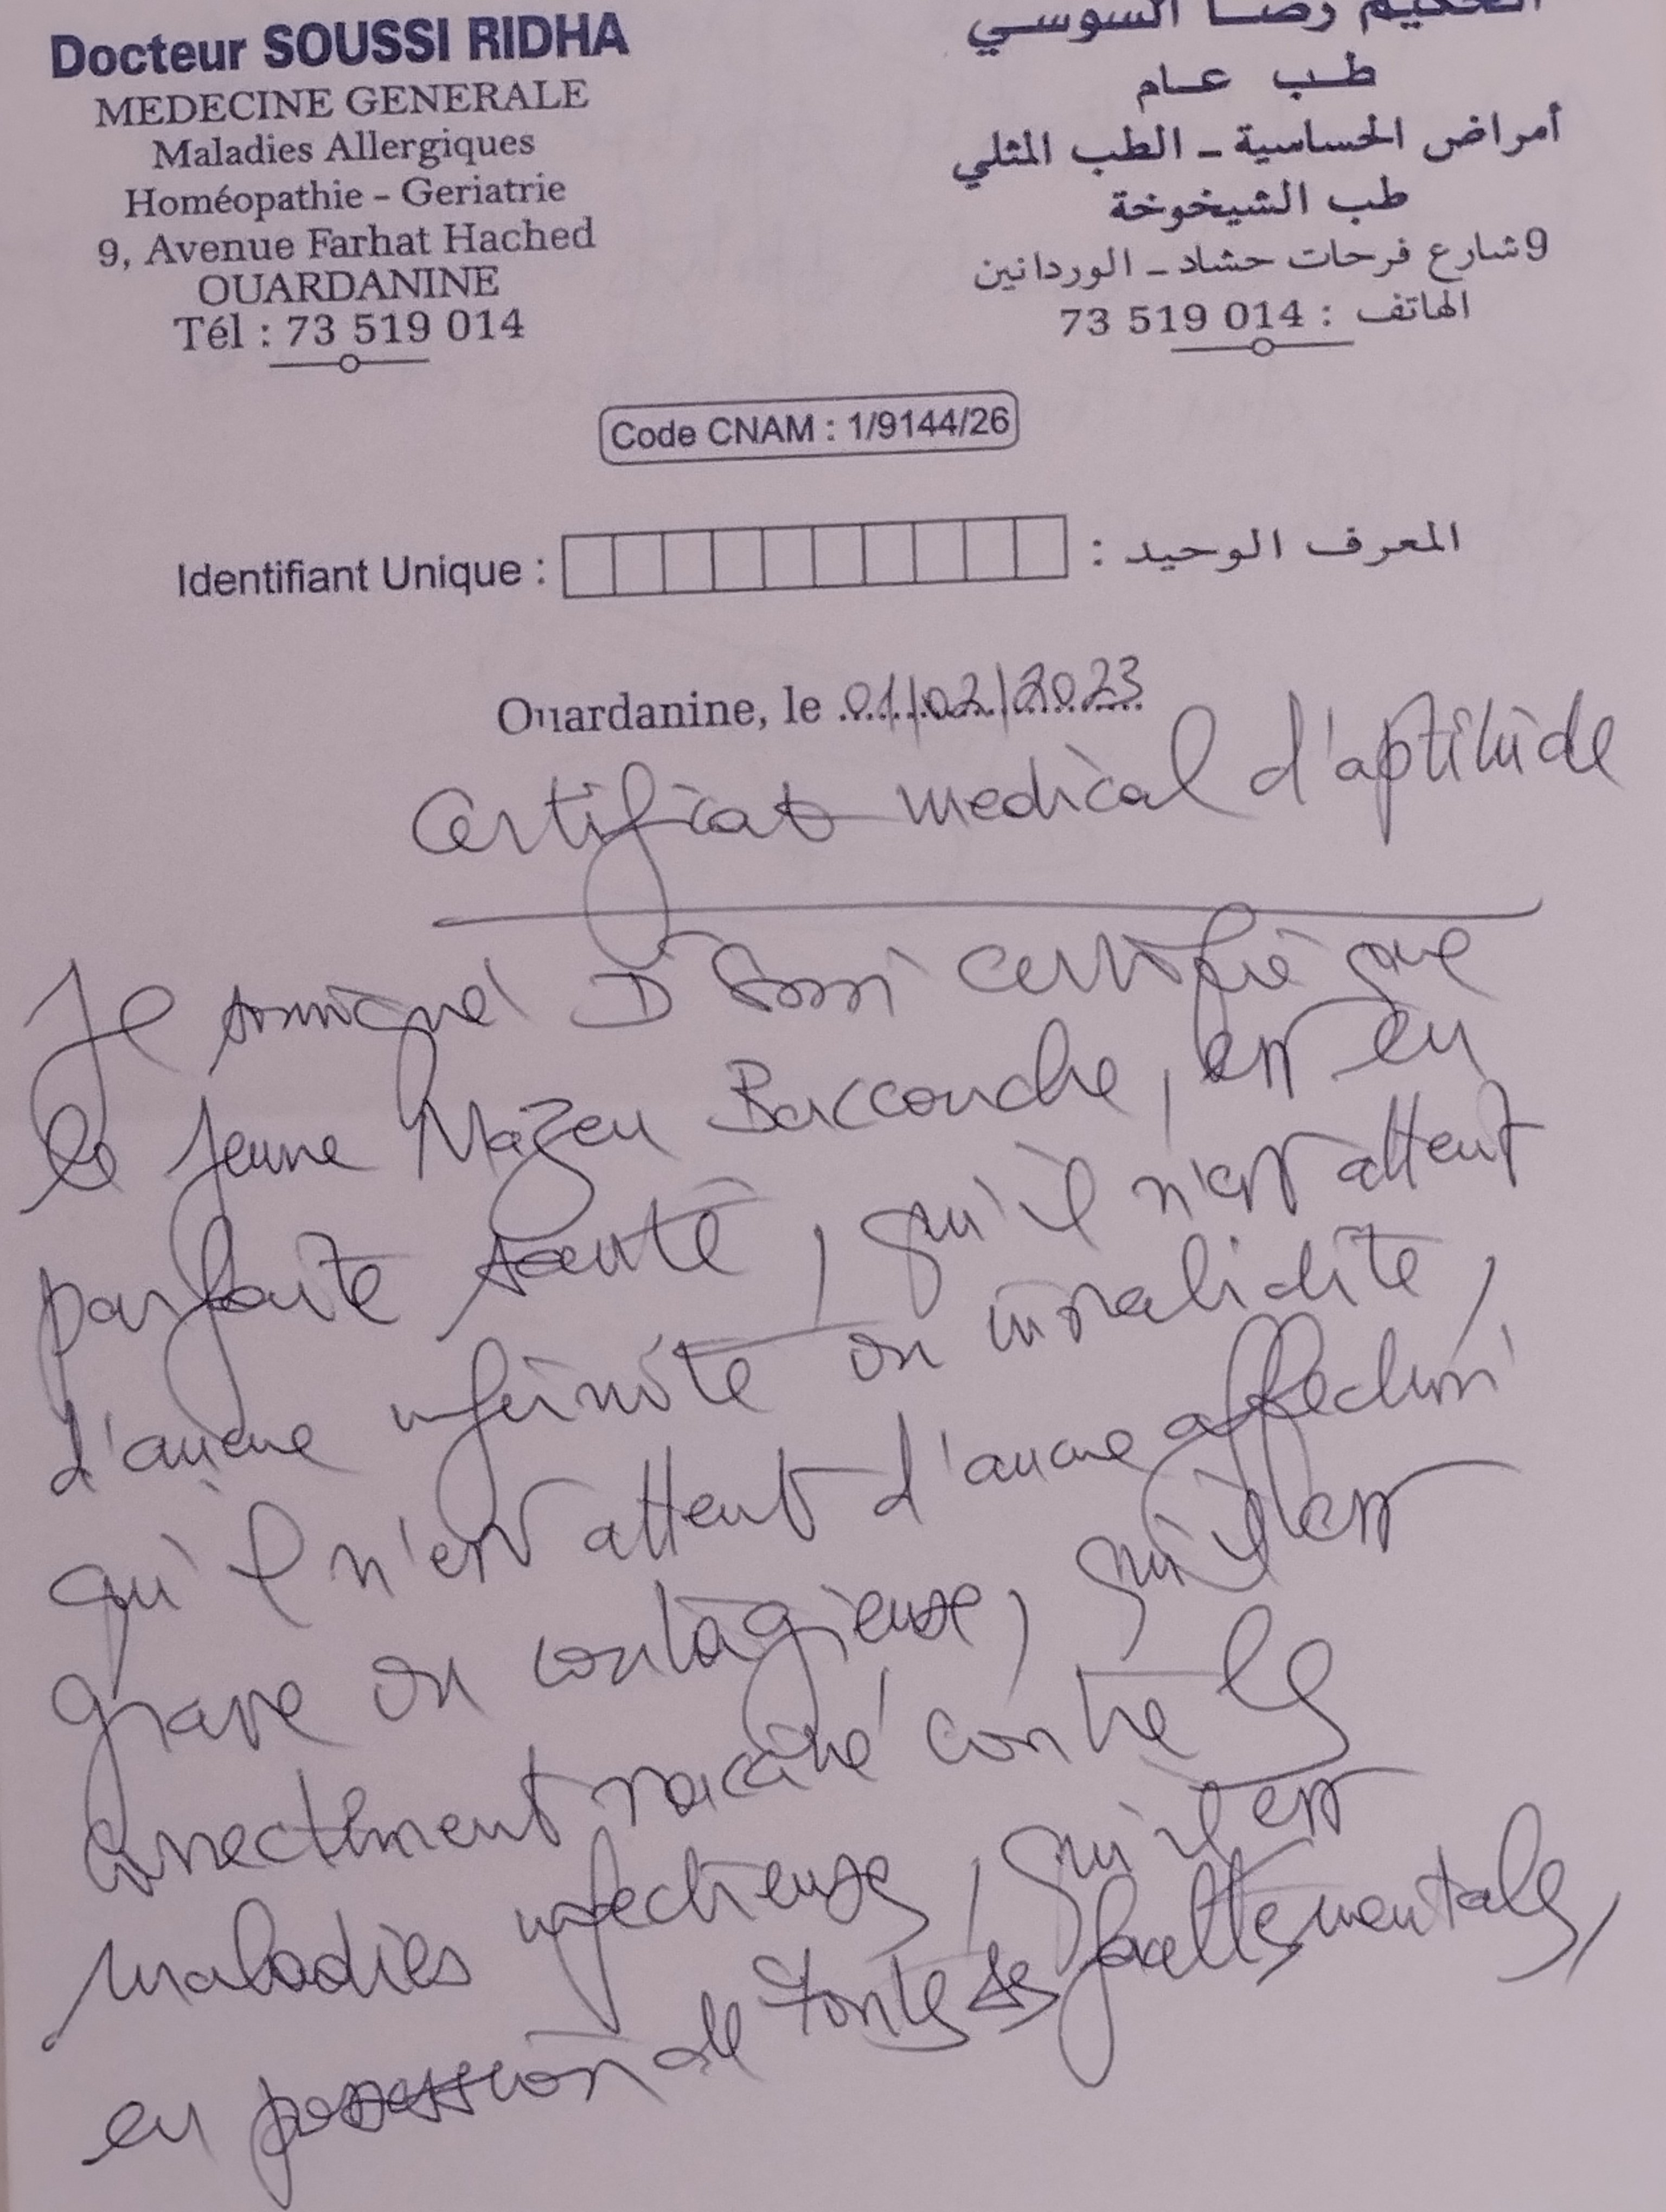 Docteur SOUSSI RIDHA
MEDECINE GENERALE
Maladies Allergiques
Homéopathie - Geriatrie
9, Avenue Farhat Hached
OUARDANINE
Tél : 73 519 014
الحكيم رضا السوسي
طب عام
أمراض الحساسية - الطب المثلي
طب الشيخوخة
9 شارع فرحات حشاد - الوردانين
الهاتف : 014 519 73
Code CNAM : 1/9144/26
Identifiant Unique : المعرف الوحيد :
Ouardanine, le 01/02/2023
Certificat medical d'aptitude
Je soussigné Dr Soussi certifie que
le jeune Mazen Baccouche, est en
parfaite santé, qu'il n'est atteint
d'aucune infirmité ou invalidité,
qu'il n'est atteint d'aucune affection
grave ou contagieuse, qu'il est
correctement vacciné contre les
maladies infectieuses, qu'il est
en possession de toutes ses facultés mentales,